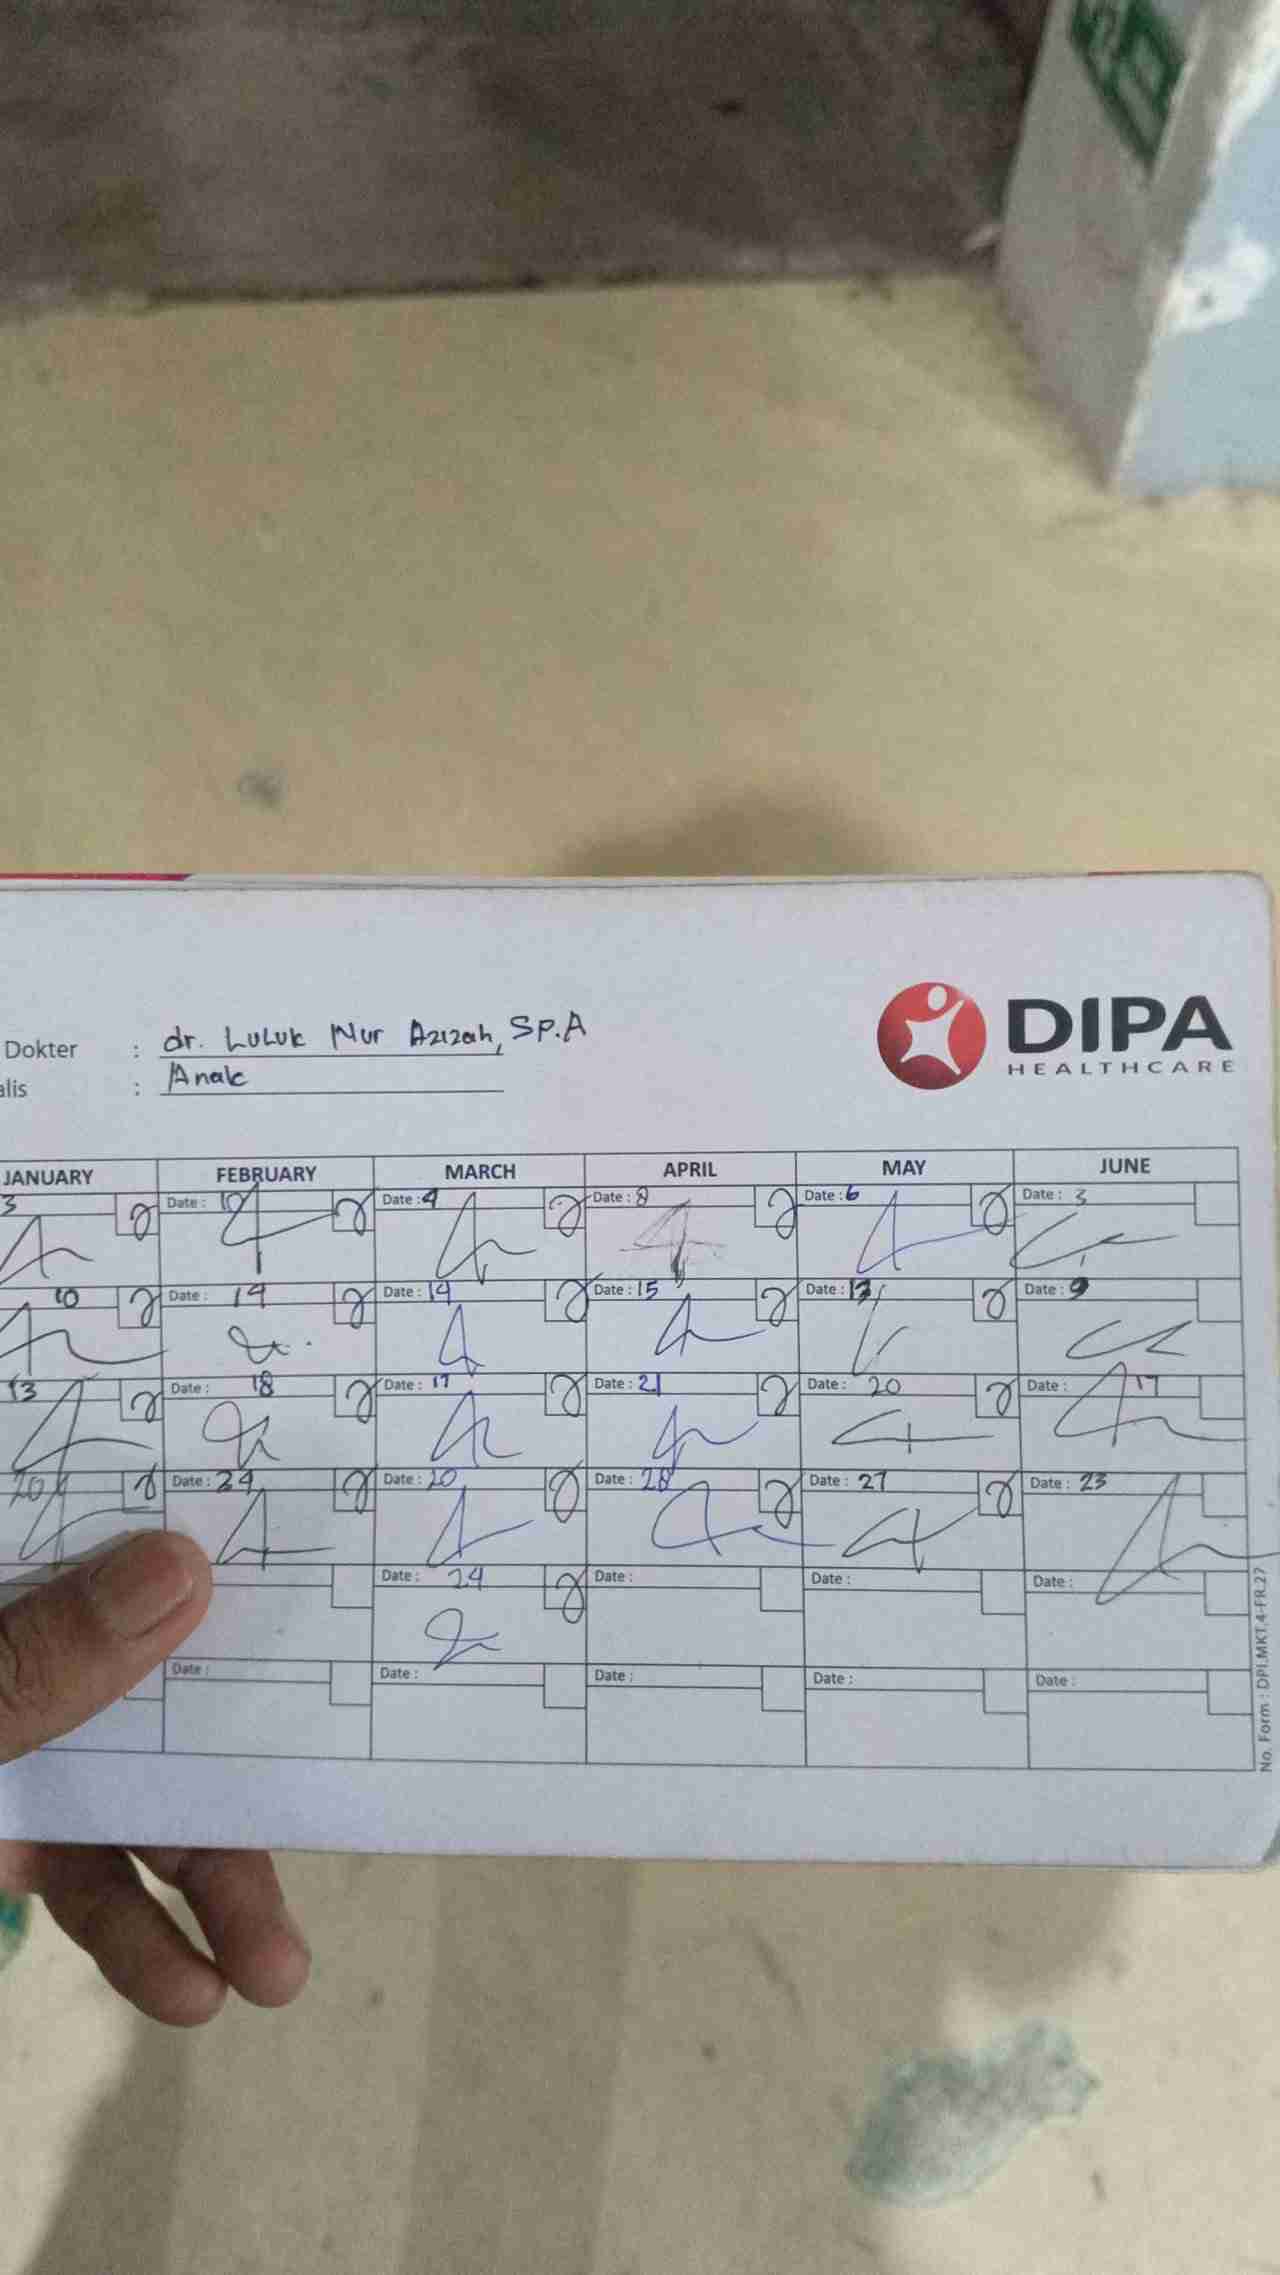 Dokter : dr. Luluk Nur Azizah, Sp.A
alis : Anak
DIPA
HEALTHCARE
JANUARY FEBRUARY MARCH APRIL MAY JUNE
3 Date : 10 Date : 4 Date : 8 Date : 6 Date : 3
10 Date : 14 Date : 14 Date : 15 Date : 13 Date : 9
13 Date : 18 Date : 17 Date : 21 Date : 20 Date : 17
20 Date : 24 Date : 20 Date : 28 Date : 27 Date : 23
Date : 24 Date : Date : Date :
Date : Date : Date : Date : Date :
No. Form : DPI.MKT.4-FR.27